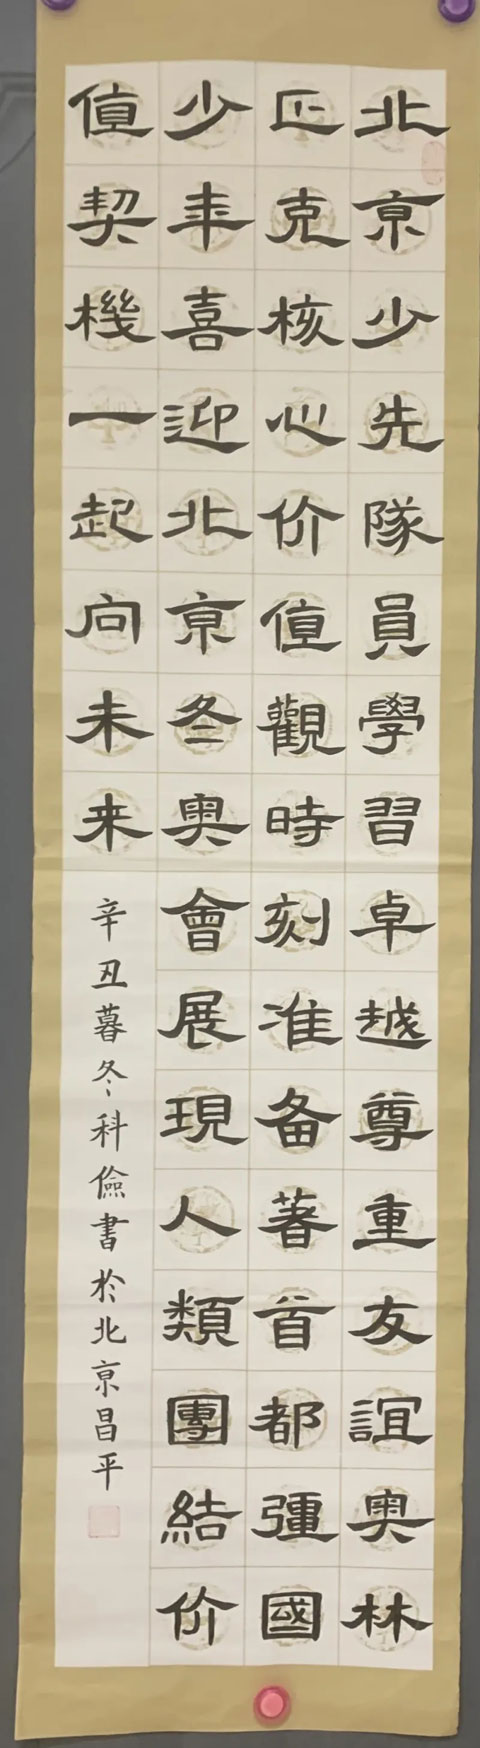 北京少先隊員學習卓越尊重友誼奥林
匹克核心价值觀時刻准备著首都彊國
少年喜迎北京冬奥會展現人類團結价
值契機一起向未来
辛丑暮冬科儉書於北京昌平